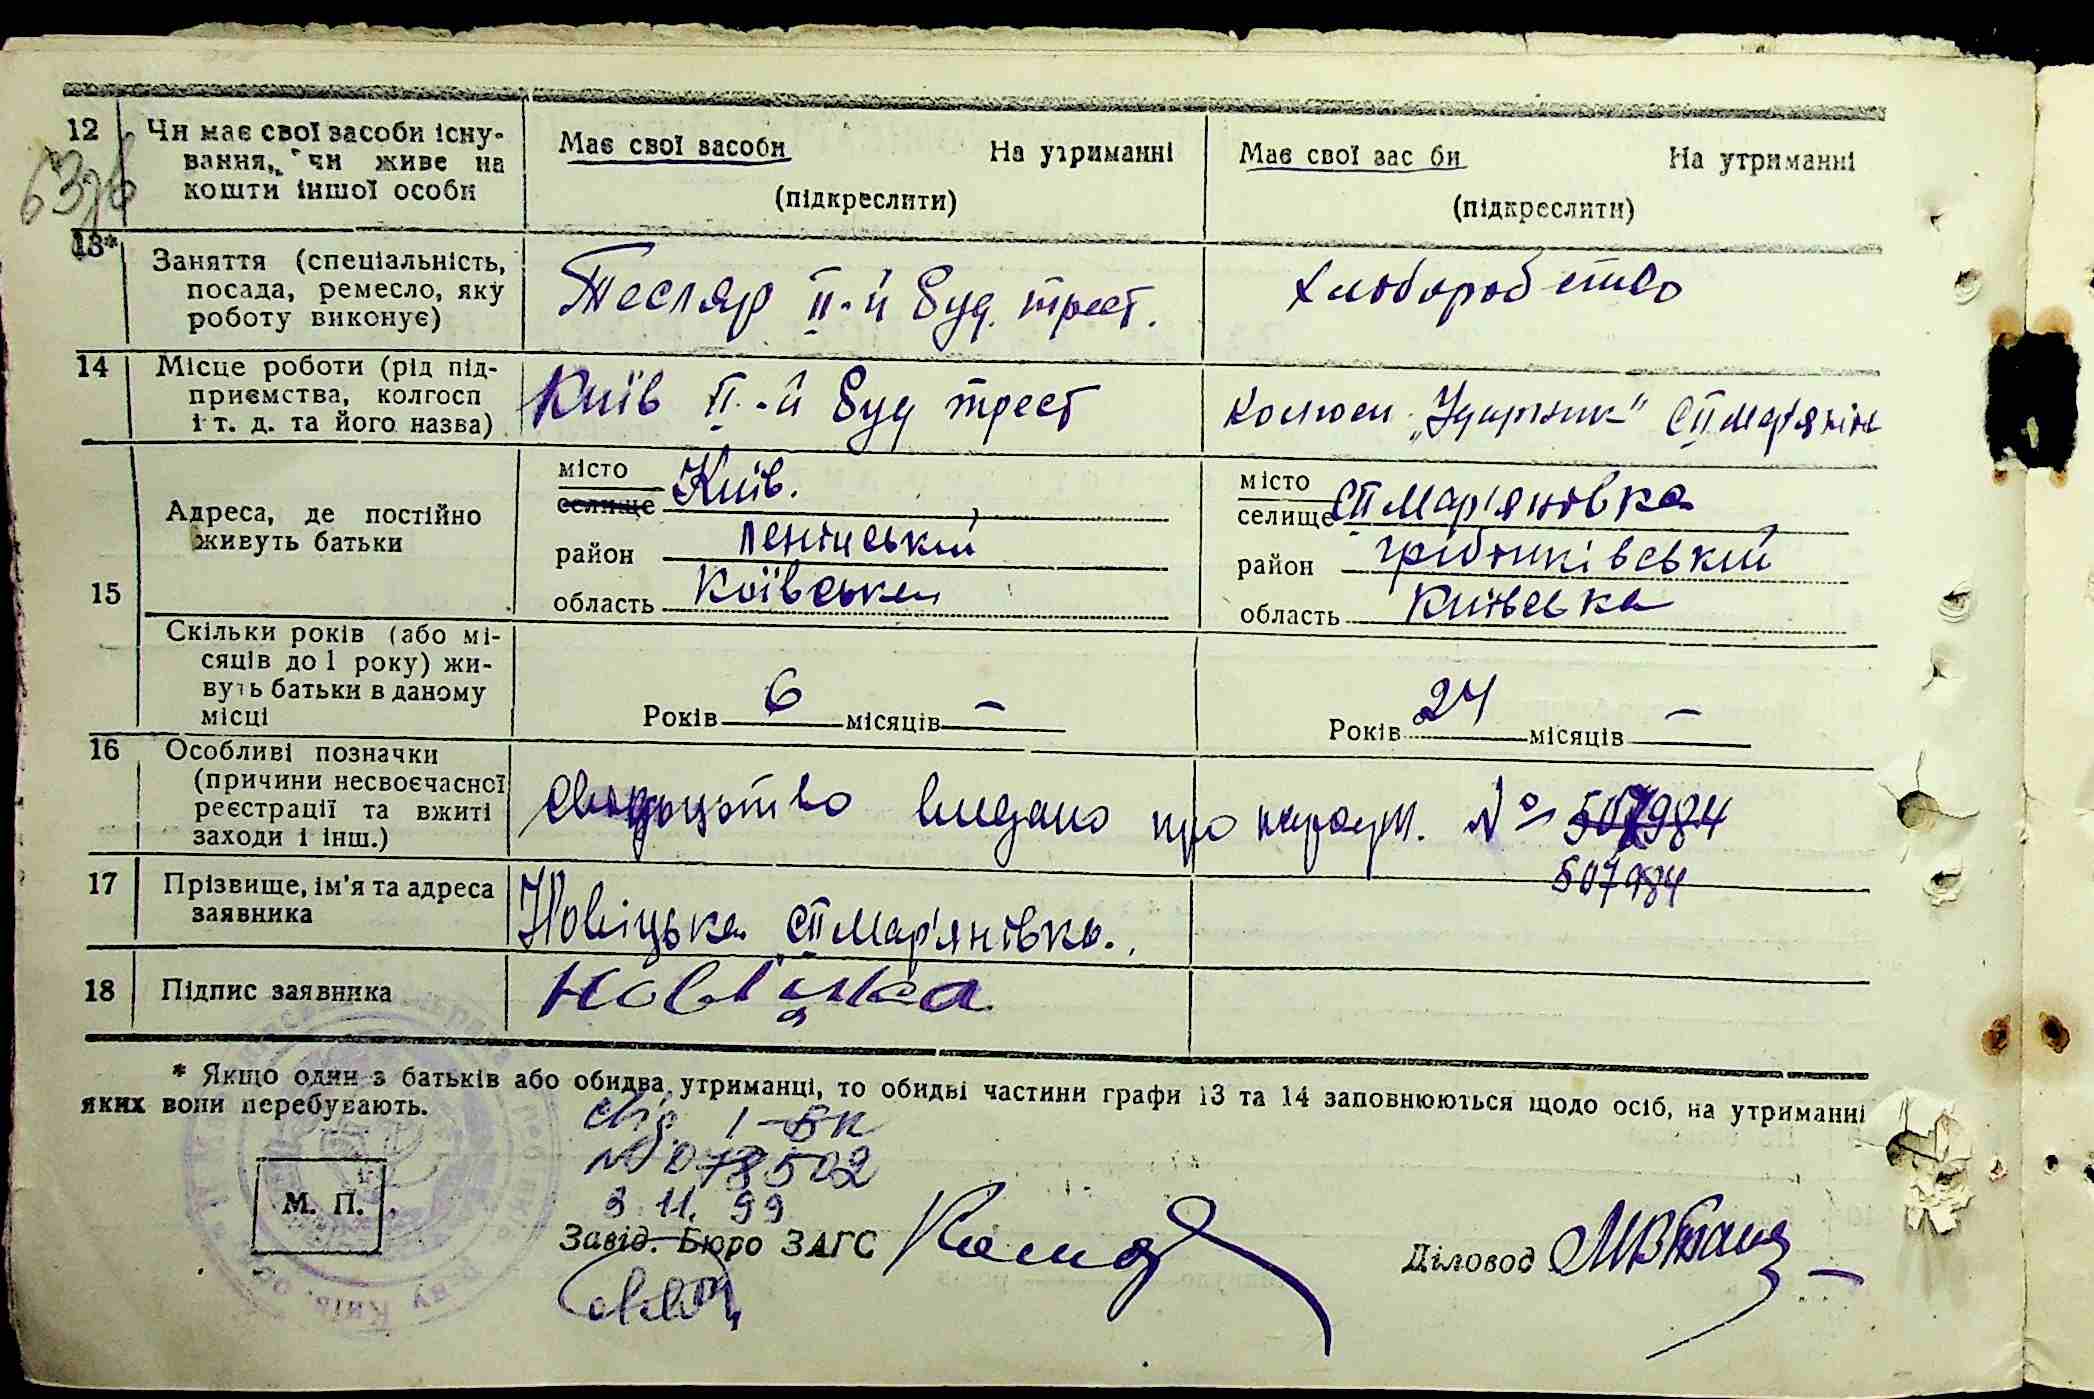 12 Чи має свої засоби існу-
вання, чи живе на
кошти іншої особи
Має свої засоби На утриманні
(підкреслити)
Має свої зас би На утриманні
(підкреслити)
13*
Заняття (спеціальність,
посада, ремесло, яку
роботу виконує)
Тесляр ІІ-й Буд. трест.
Хліборобство
14 Місце роботи (рід під-
приємства, колгосп
і т. д. та його назва)
Київ ІІ-й Буд трест
"Ударник" СТ Мар'янів
15
Адреса, де постійно
живуть батьки
місто
селище Київ.
район Ленінський
область Київська
місто
селище СТ Мар'яновка
район Грібінківський
область Київська
Скільки років (або мі-
сяців до 1 року) жи-
вуть батьки в даному
місці
Років 6 місяців —
Років 24 місяців —
16 Особливі позначки
(причини несвоєчасної
реєстрації та вжиті
заходи і інш.)
Свидоцтво видано про народж. № 507984
507984
17 Прізвище, ім'я та адреса
заявника
Новіцька СТ Мар'янівка.
18 Підпис заявника
Новіцка
* Якщо один з батьків або обидва утриманці, то обидві частини графи 13 та 14 заповнюються щодо осіб, на утриманні
яких вони перебувають.
Свід. І-БК
№ 078502
3. 11. 99
М. П.
Завід. Бюро ЗАГС
Діловод